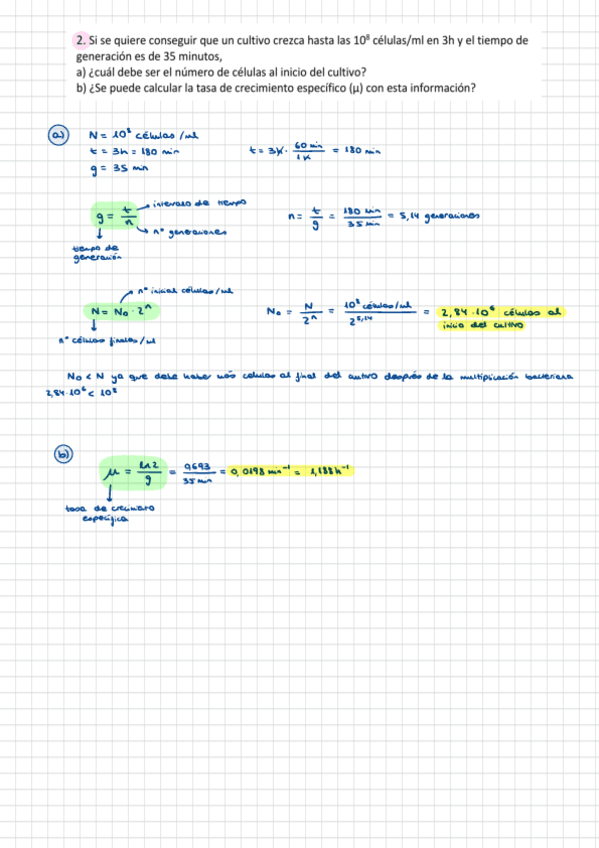 2. Si se quiere conseguir que un cultivo crezca hasta las 10⁸ células/ml en 3h y el tiempo de
generación es de 35 minutos,
a) ¿cuál debe ser el número de células al inicio del cultivo?
b) ¿Se puede calcular la tasa de crecimiento específico (μ) con esta información?
a) N = 10⁸ células/ml
t = 3h = 180 min
t = 3h · 60 min / 1h = 180 min
g = 35 min
g = t/n
intervalo de tiempo
nº generaciones
tiempo de
generación
n = t/g = 180 min / 35 min = 5,14 generaciones
nº inicial células/ml
N = N₀ · 2ⁿ
nº células finales/ml
N₀ = N / 2ⁿ = 10⁸ células/ml / 2^5,14 = 2,84 · 10⁶ células al
inicio del cultivo
N₀ < N ya que debe haber más células al final del cultivo después de la multiplicación bacteriana
2,84 · 10⁶ < 10⁸
b)
μ = ln 2 / g = 0,693 / 35 min = 0,0198 min⁻¹ = 1,188 h⁻¹
tasa de crecimiento
específica